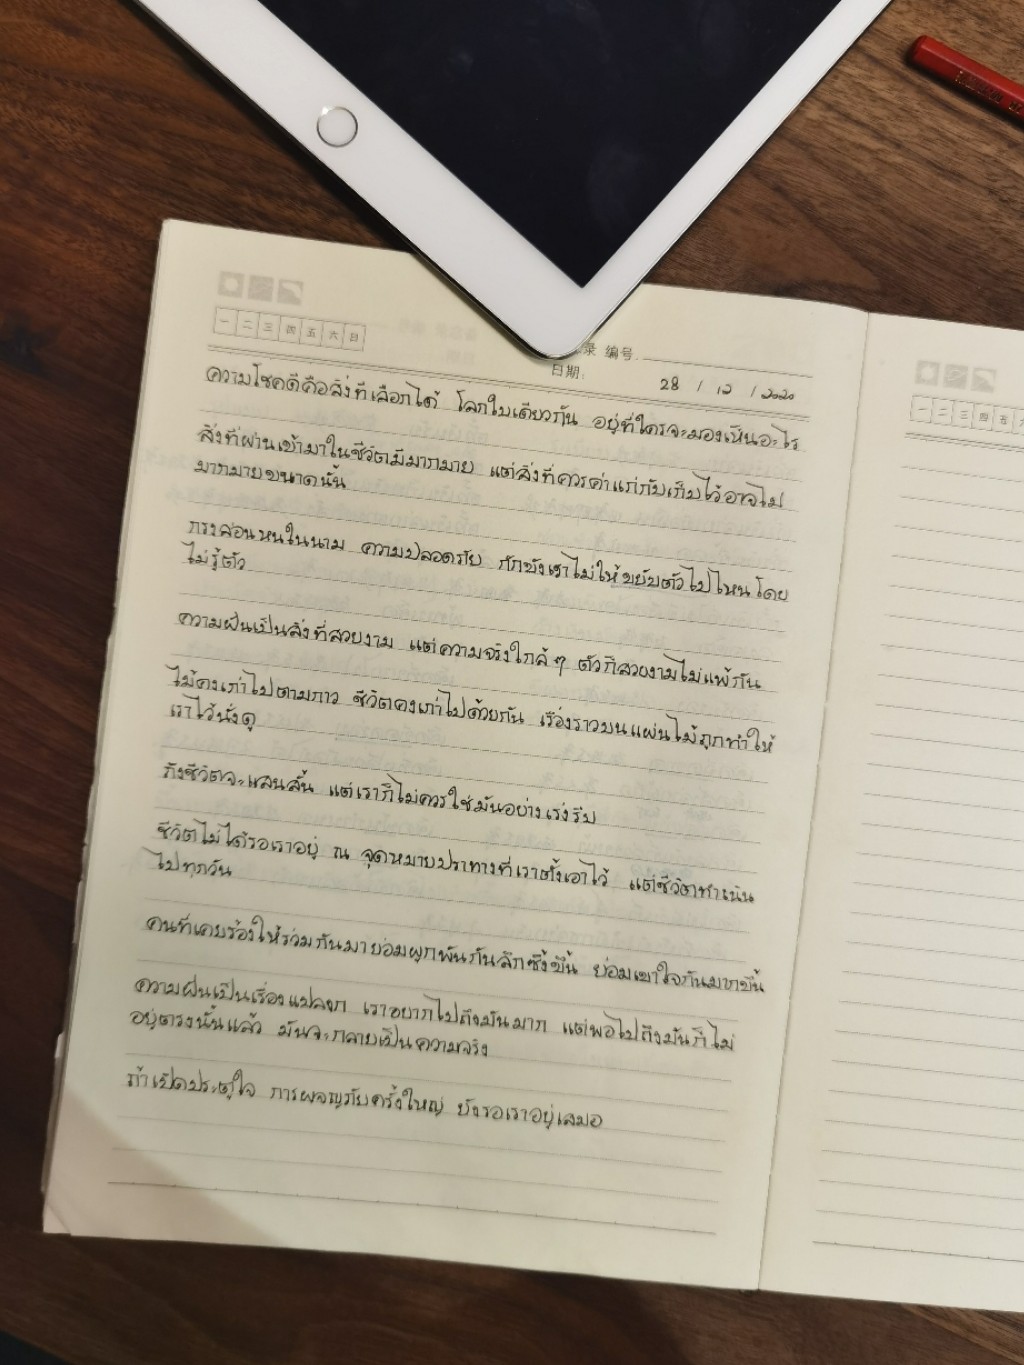 一 二 三 四 五 六 日
录 编号.
日期: 28 / 12 / 2020
ความโชคดีคือสิ่งที่เลือกได้ โลกใบเดียวกัน อยู่ที่ใครจะมองเห็นอะไร
สิ่งที่ผ่านเข้ามาในชีวิตมีมากมาย แต่สิ่งที่ควรค่าแก่กับเก็บไว้อาจไม่
มากมายขนาดนั้น
กรงล่อนหนในนาม ความปลอดภัย กักขังเราไม่ให้ขยับตัวไปไหนโดย
ไม่รู้ตัว
ความฝันเป็นสิ่งที่สวยงาม แต่ความจริงใกล้ๆ ตัวก็สวยงามไม่แพ้กัน
ไม้คงเก่าไปตามกาว ชีวิตคงเก่าไปด้วยกัน เรื่องราวบนแผ่นไม้ถูกทำให้
เราไว้นั่งดู
ถึงชีวิตจะแสนสั้น แต่เราก็ไม่ควรใช้มันอย่างเร่งรีบ
ชีวิตไม่ได้รอเราอยู่ ณ จุดหมายปราทางที่เราตั้งเอาไว้ แต่ชีวิตดำเนิน
ไปทุกวัน
คนที่เคยร้องไห้ร่วมกันมาย่อมผูกพันกันลึกซึ้งขึ้น ย่อมเขาใจกันมากขึ้น
ความฝันเป็นเรื่องแปลก เราอยากไปถึงมันมาก แต่พอไปถึงมันก็ไม่
อยู่ตรงนั้นแล้ว มันจะกลายเป็นความจริง
ถ้าเปิดประตูใจ การผจญภัยครั้งใหญ่ ยังรอเราอยู่เสมอ
一 二 三 四 五 六